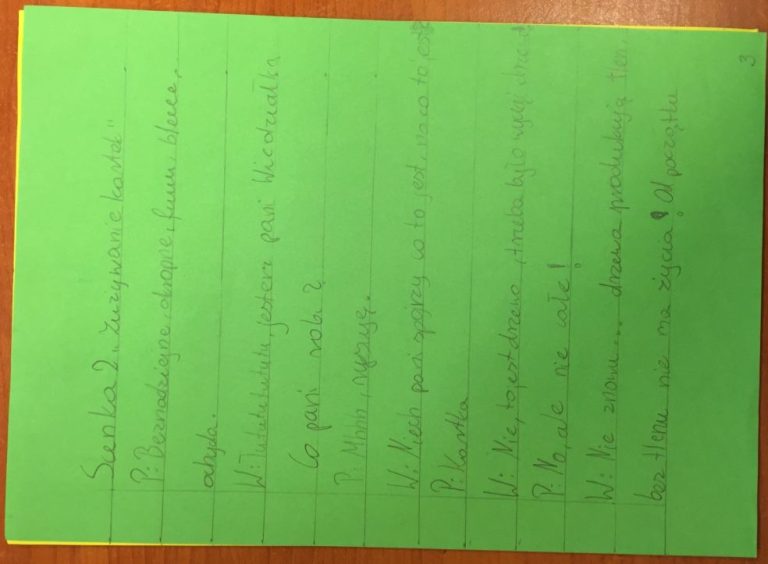 Scenka 2 „Zużywanie kartek"
P: Beznadziejne, okropne, fuuu, bleee,
ohyda.
W: Tututututu, jestem pani Wiedzialka
Co pani robi?
P: Mhhh, rysuję.
W: Niech pani spojrzy co to jest, no co to jest
P: Kartka
W: Nie, to jest drzewo, trzeba było wyciąć drzewo
P: No, ale nie całe!
W: Nie znowu... drzewa produkują tlen,
bez tlenu nie ma życia! Od początku
3